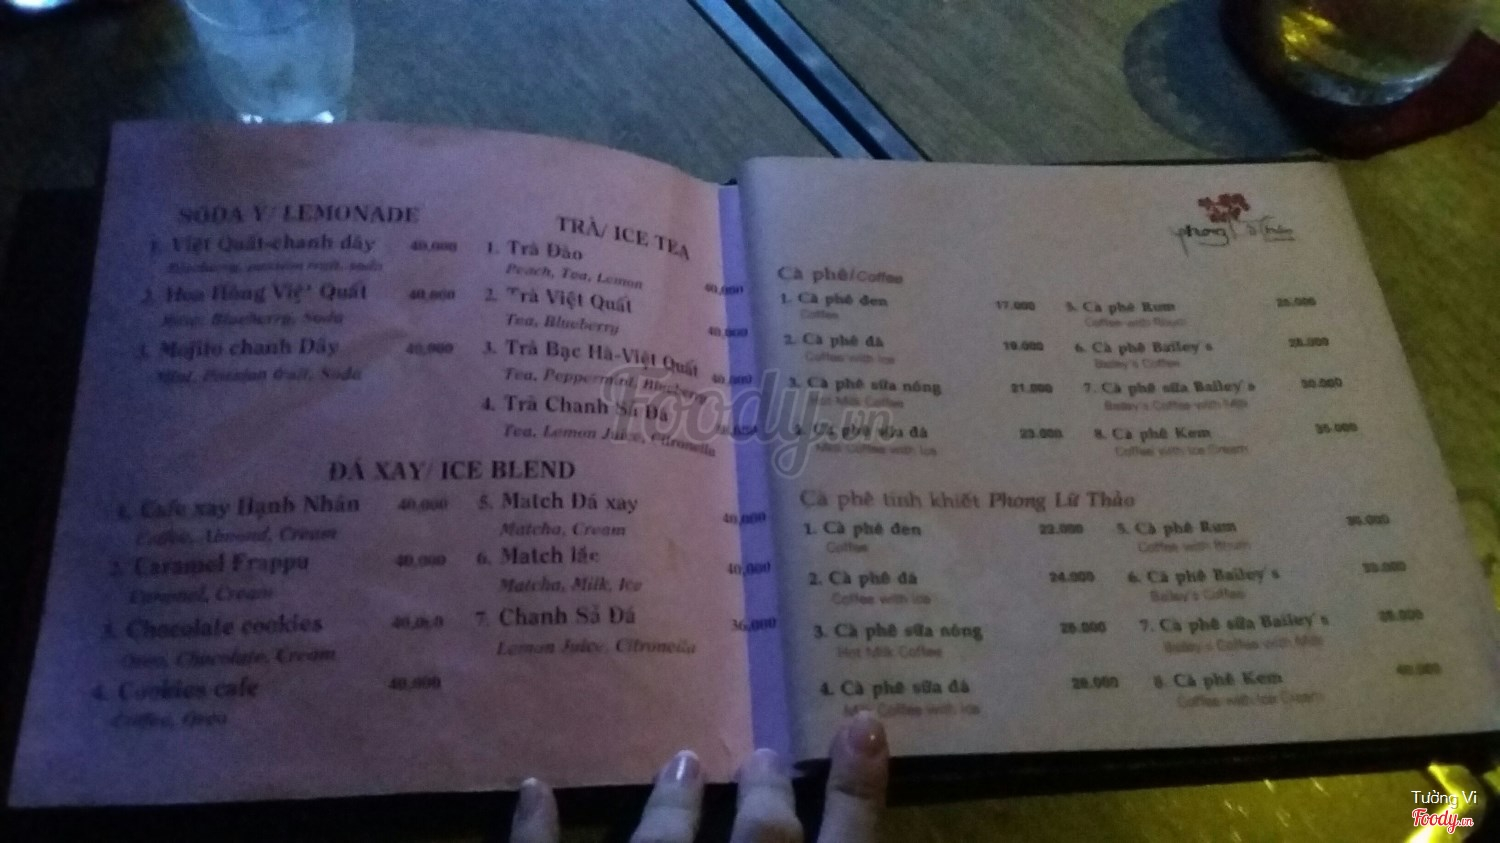 SODA Ý/ LEMONADE
1. Việt Quất-chanh dây 40,000
Blueberry, passion fruit, soda
2. Hoa Hồng Việt Quất 40,000
Rose, Blueberry, Soda
3. Mojito chanh Dây 40,000
Mint, Passion fruit, Soda
TRÀ/ ICE TEA
1. Trà Đào
Peach, Tea, Lemon 40,000
2. Trà Việt Quất
Tea, Blueberry 40,000
3. Trà Bạc Hà-Việt Quất
Tea, Peppermint, Blueberry 40,000
4. Trà Chanh Sả Đá
Tea, Lemon Juice, Citronella
ĐÁ XAY/ ICE BLEND
1. Cafe xay Hạnh Nhân 40,000
Coffee, Almond, Cream
2. Caramel Frappu 40,000
Caramel, Cream
3. Chocolate cookies 40,000
Oreo, Chocolate, Cream
4. Cookies cafe 40,000
Coffee, Oreo
5. Match Đá xay
Matcha, Cream 40,000
6. Match lắc
Matcha, Milk, Ice 40,000
7. Chanh Sả Đá
Lemon Juice, Citronella 36,000
Phong Lữ Thảo
Cà phê/Coffee
1. Cà phê đen 17.000
Coffee
2. Cà phê đá 19.000
Coffee with Ice
3. Cà phê sữa nóng 21.000
Hot Milk Coffee
4. Cà phê sữa đá 23.000
Milk Coffee with Ice
5. Cà phê Rum 25.000
Coffee with Rhum
6. Cà phê Bailey's 28.000
Bailey's Coffee
7. Cà phê sữa Bailey's 30.000
Bailey's Coffee with Milk
8. Cà phê Kem 35.000
Coffee with Ice Cream
Cà phê tinh khiết Phong Lữ Thảo
1. Cà phê đen 22.000
Coffee
2. Cà phê đá 24.000
Coffee with Ice
3. Cà phê sữa nóng 26.000
Hot Milk Coffee
4. Cà phê sữa đá 28.000
Milk Coffee with Ice
5. Cà phê Rum 30.000
Coffee with Rhum
6. Cà phê Bailey's
Bailey's Coffee
7. Cà phê sữa Bailey's
Bailey's Coffee with Milk
8. Cà phê Kem 40.000
Coffee with Ice Cream
Foody.vn
Tường Vi
Foody.vn